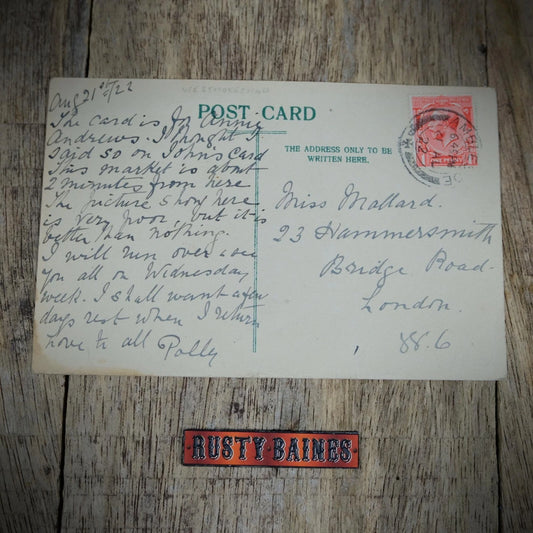 WESTMORELAND
POST CARD
THE ADDRESS ONLY TO BE
WRITTEN HERE.
Aug 21st/22
The card is for Annie
Andrews. I thought I
said so on John's card
This market is about
2 minutes from here
The picture show here
is very poor but it is
better than nothing.
I will run over & see
you all on Wednesday
week. I shall want a few
days rest when I return
Love to all Polly
Miss Mallard.
23 Hammersmith
Bridge Road.
London.
ONE PENNY
RUSTY·BAINES